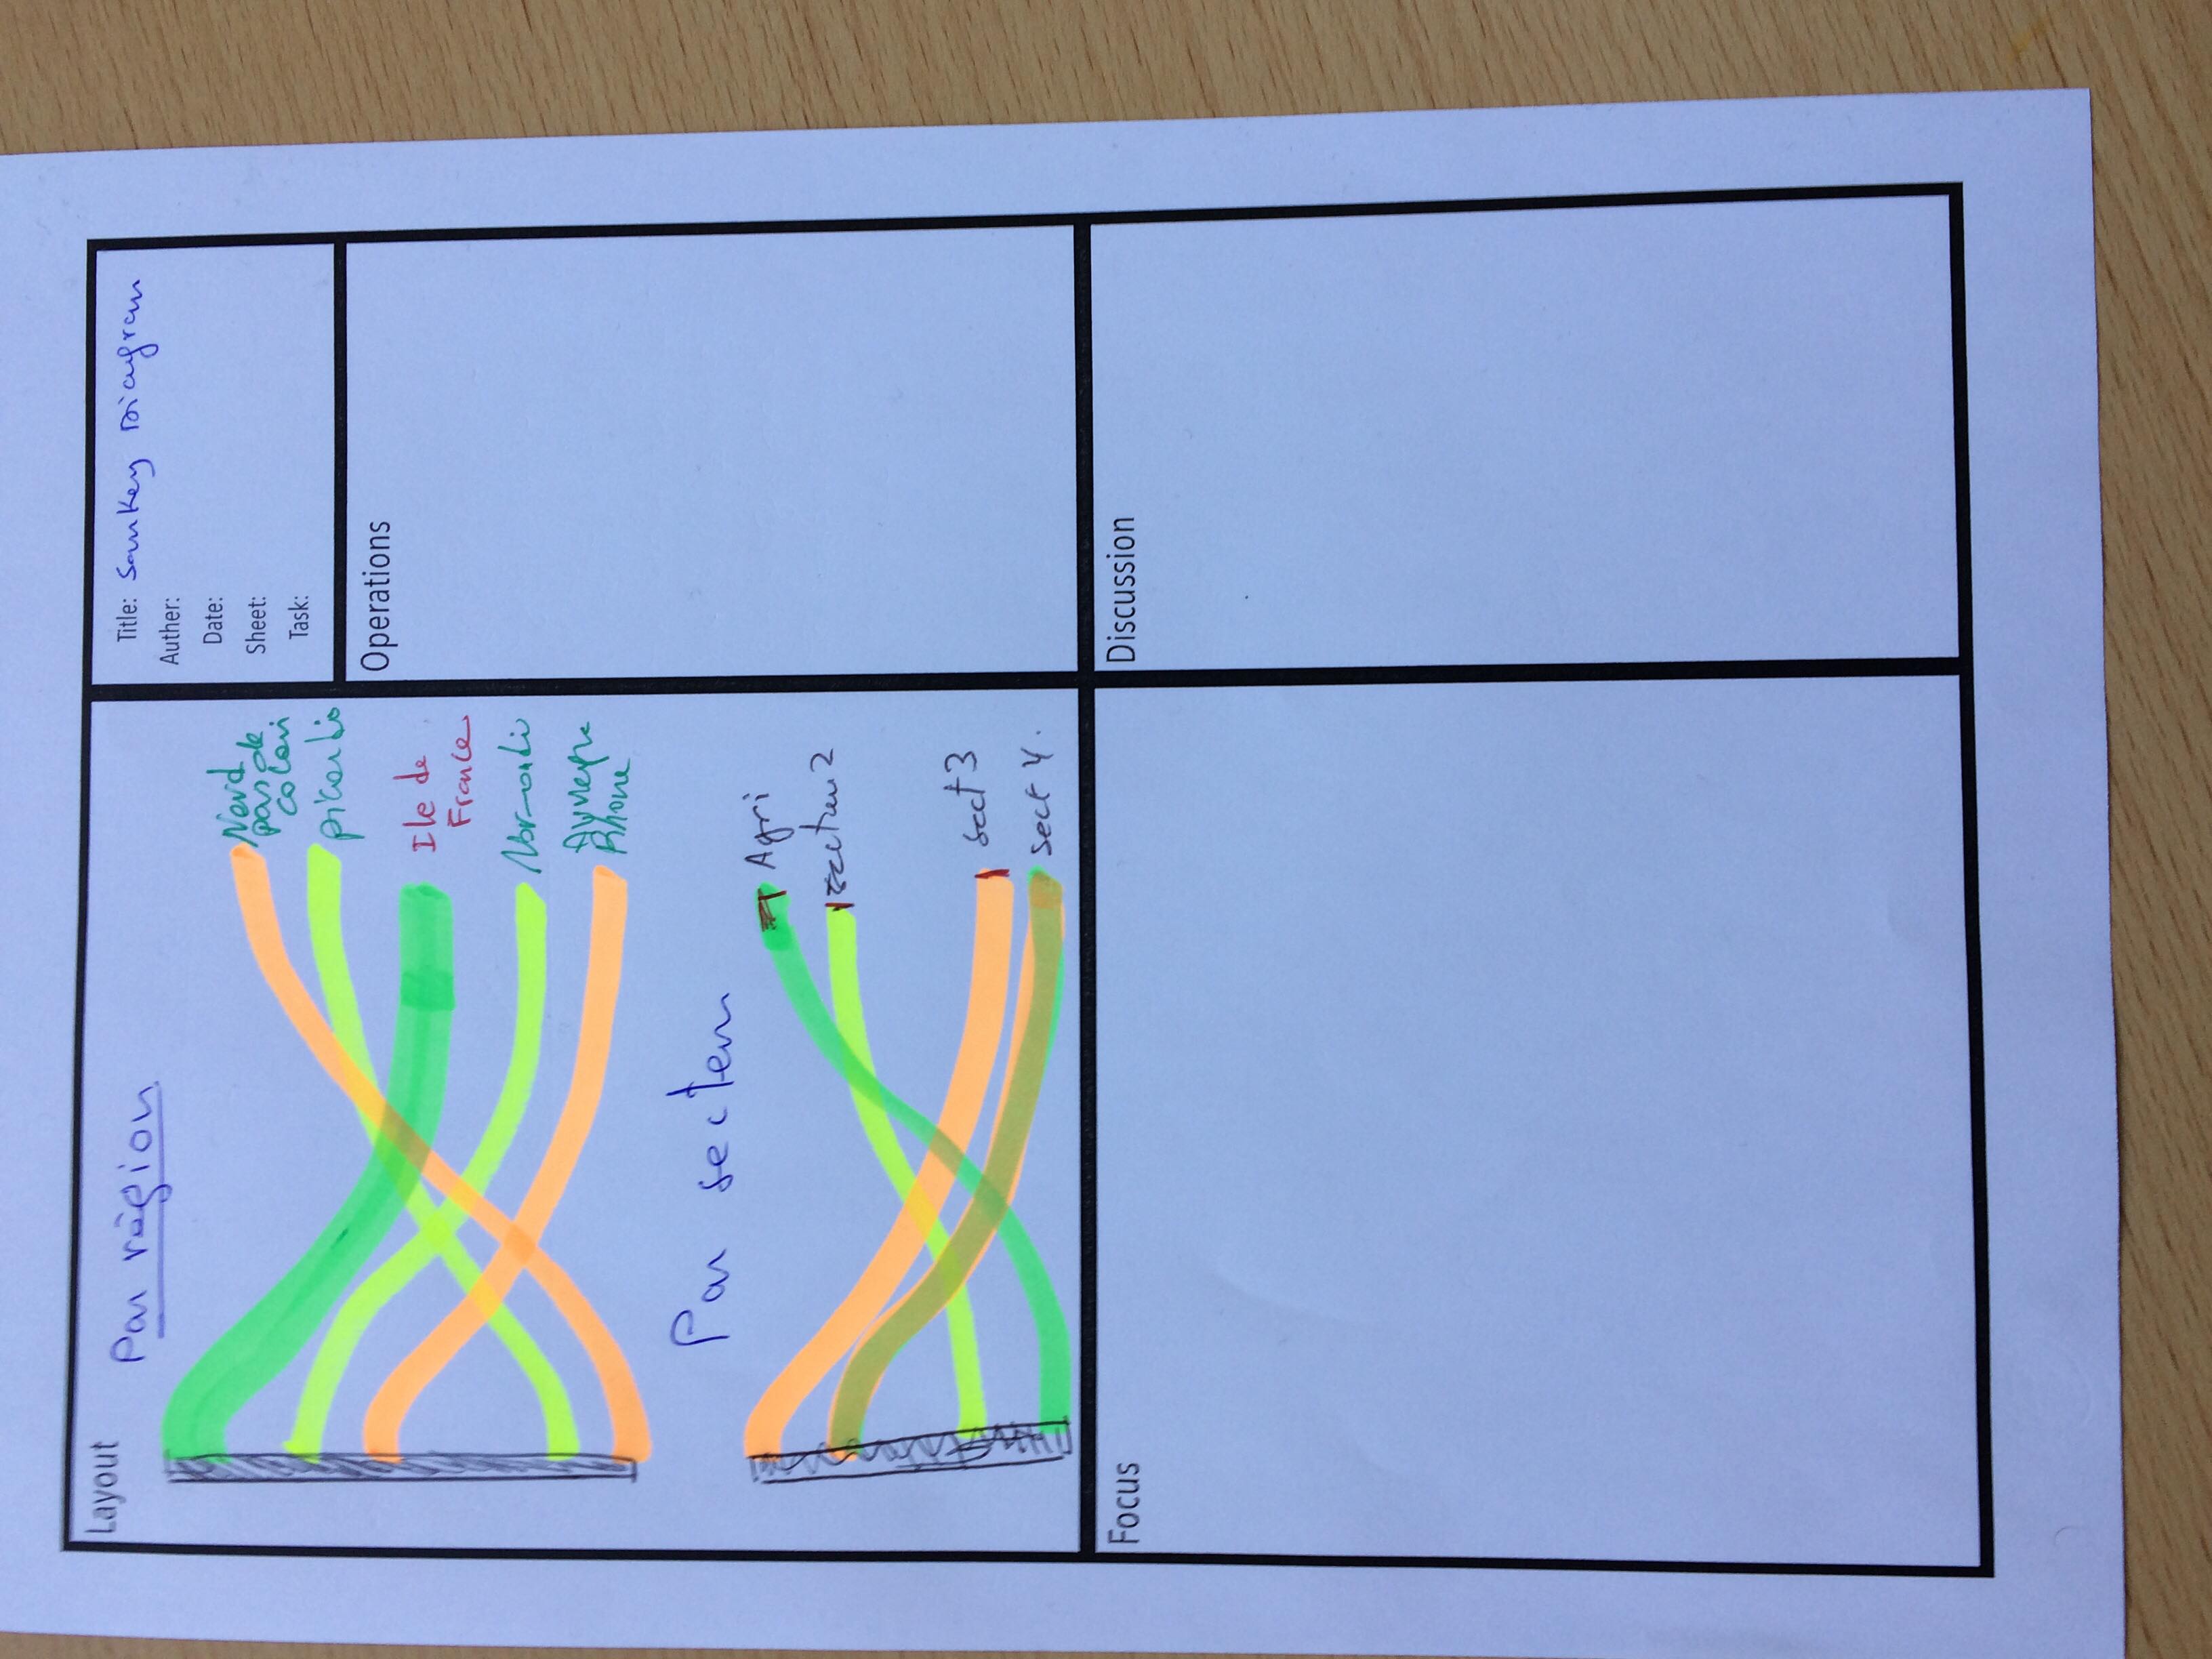 Layout
Par région
Nord
pas de
calais
picardie
Ile de
France
Normandi
Auvergne
Rhone
Par secteur
Agri
secteur 2
sect 3
sect 4.
Title: Sankey Diagram
Auther:
Date:
Sheet:
Task:
Operations
Focus
Discussion